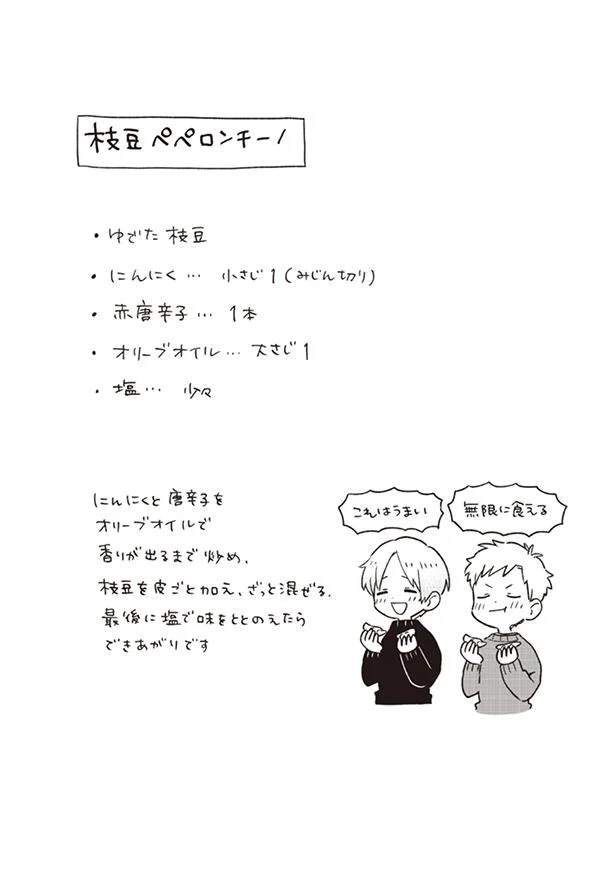 枝豆ペペロンチーノ
・ゆでた 枝豆
・にんにく… 小さじ1(みじん切り)
・赤唐辛子… 1本
・オリーブオイル… 大さじ1
・塩… 少々
にんにくと唐辛子を
オリーブオイルで
香りが出るまで炒め、
枝豆を皮ごと加え、ざっと混ぜる.
最後に塩で味をととのえたら
できあがりです
これはうまい
無限に食える